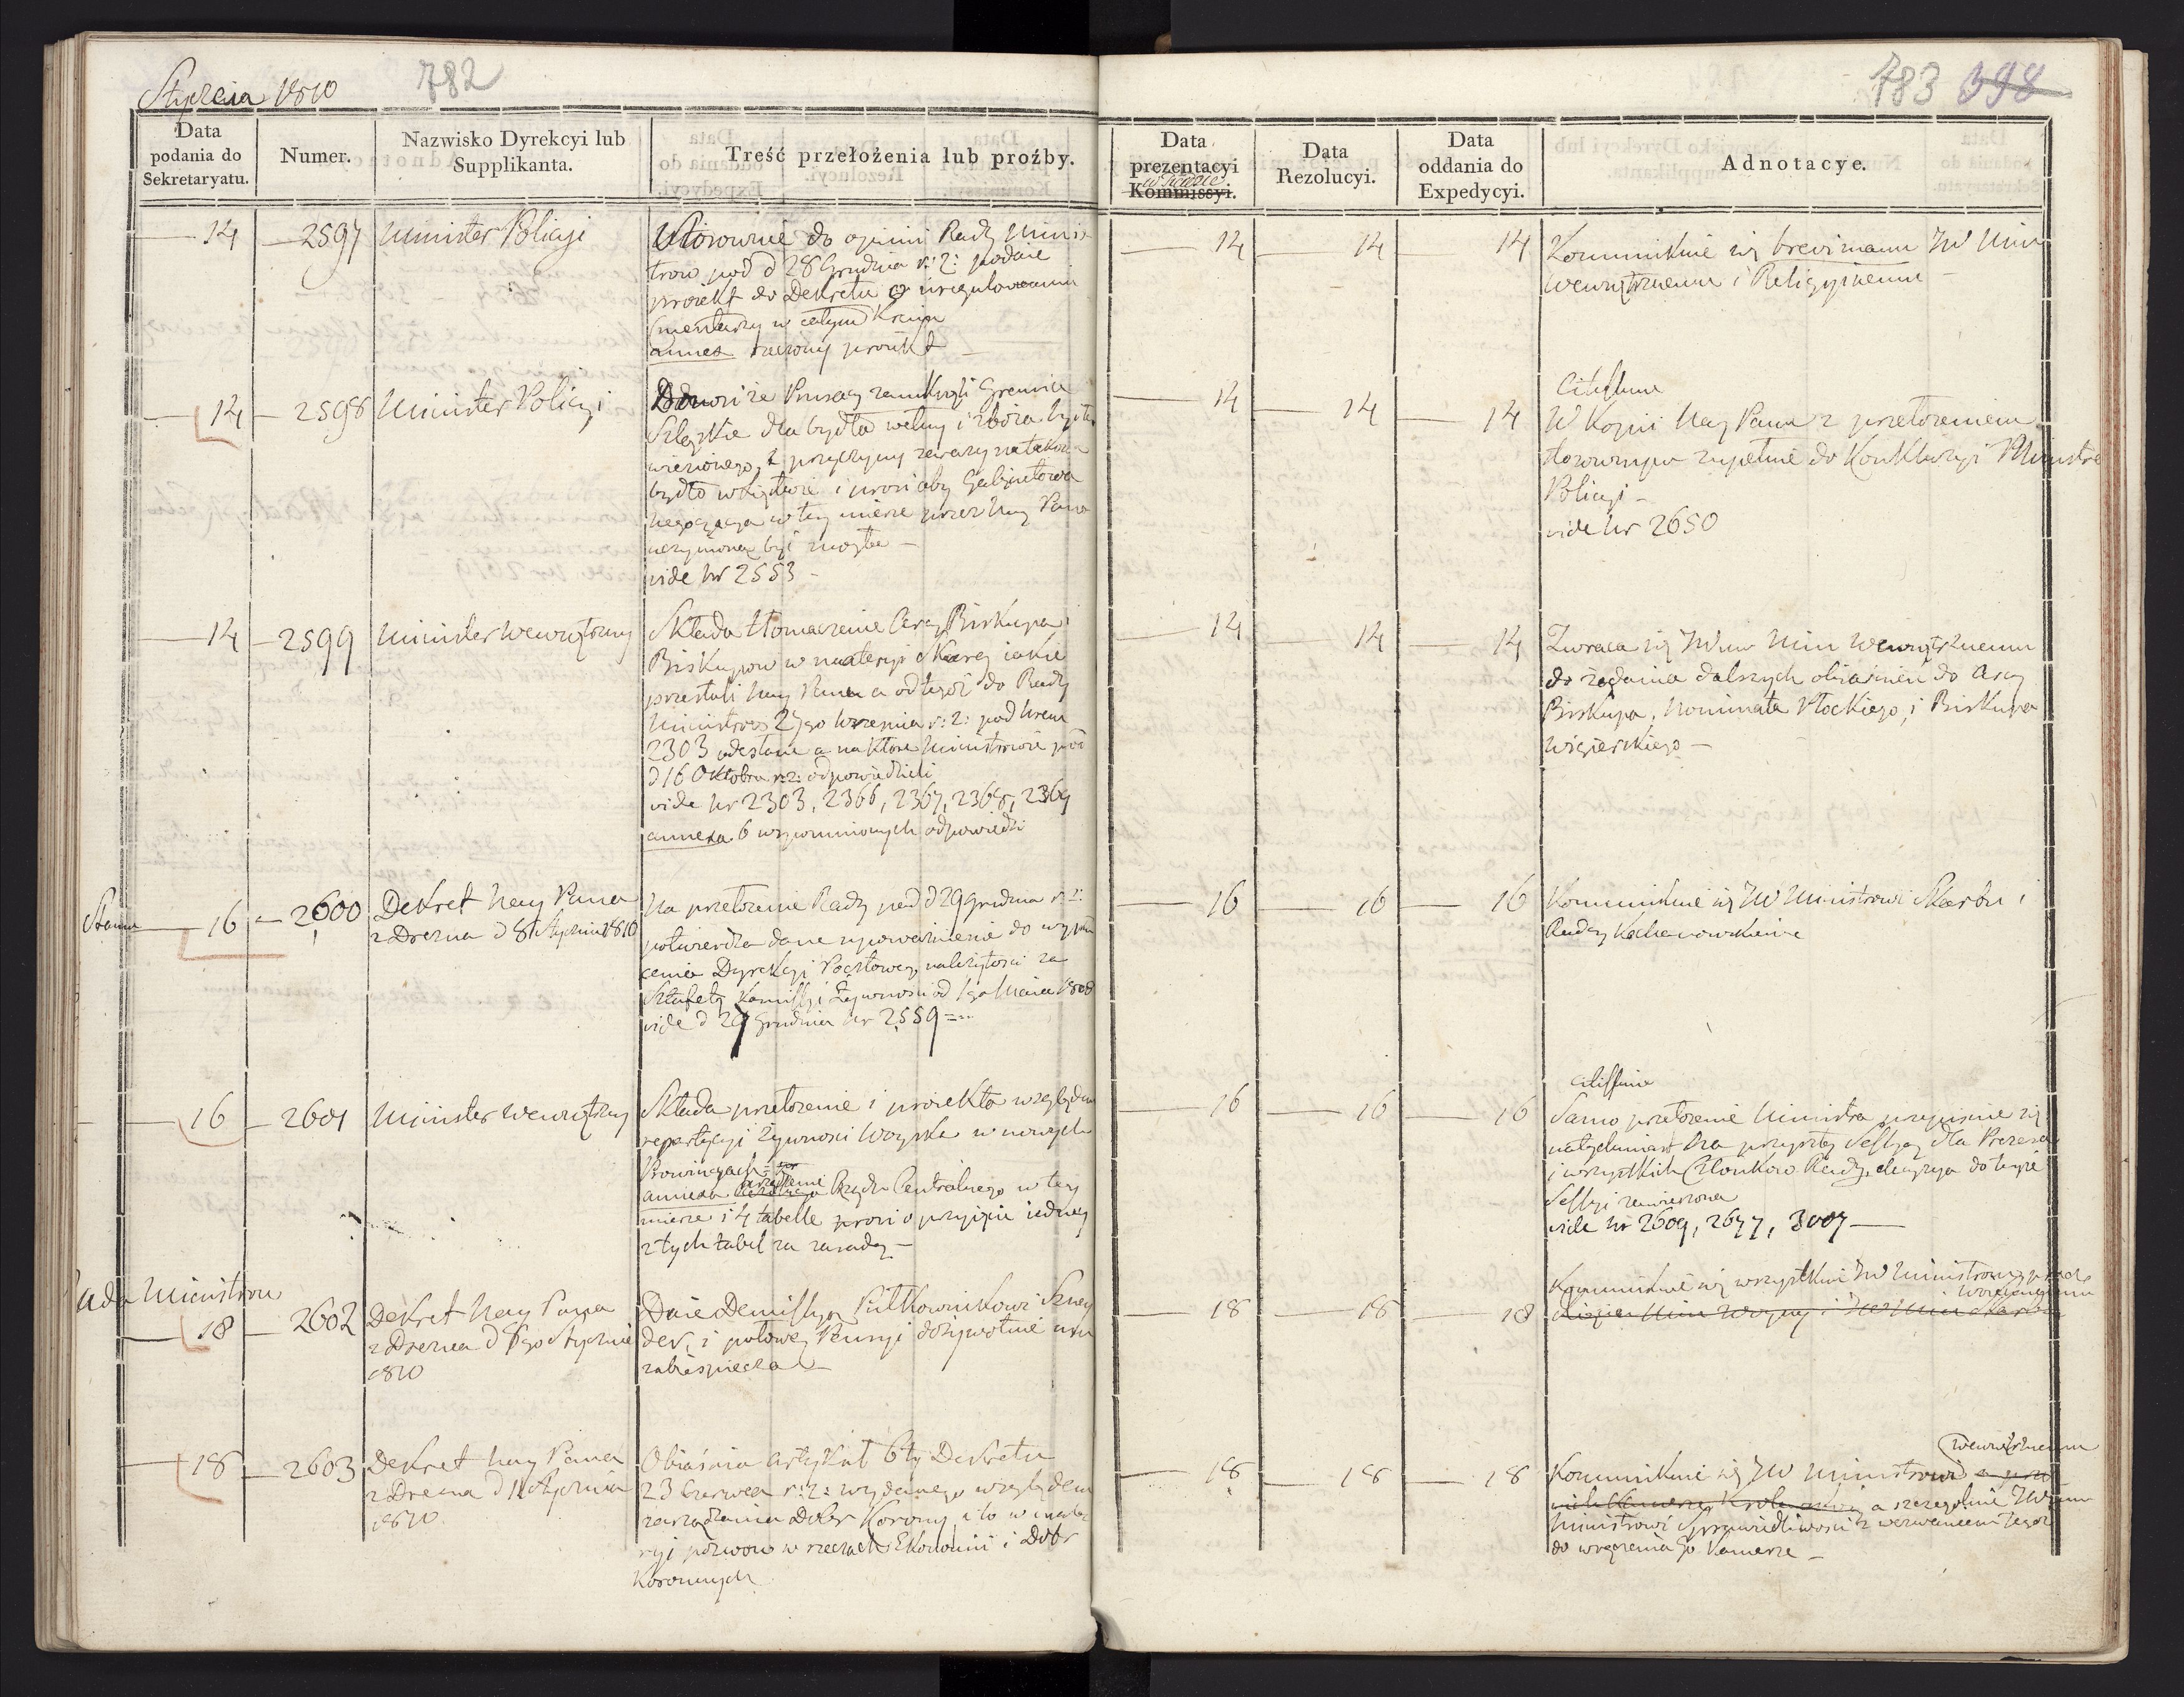 Stycznia 1810
782
Data podania do Sekretaryatu.
Numer.
Nazwisko Dyrekcyi lub Supplikanta.
Treść przełożenia lub proźby.
14
2597
Minister Policyi
Stosownie do opinii Rady Minis
trow pod d 28 Grudnia r: z: podaie
proiekt do Dekretu o uregulowaniu
Smentarzy w całym Kraju
annex rzeczony proiekt
14
2598
Minister Policyi
Donosi że Prusacy zamknęli Granice
Szląskie dla bydła wełny i zboża
z przyczyny zarazy na
bydło w Xięstwie i prosi aby Gabinetowa
negocyacya w tey mierze przez Nay Pana
uczyniona być mogła –
vide Nr 2553 –
14
2599
Minister Wewnętrzny
Składa tłomaczenie Arcy Biskupa i
Biskupow w materyi iakie
przesłali Nay Panu a od tegoż do Rady
Ministrow 27go Września r: z: pod Nrem
2303 odesłane a na ktore Ministrowie pod
d 16 Oktobra r: z: odpowiedzieli
vide Nr 2303, 2366, 2367, 2368, 2369
annexa 6 wspomnionych odpowiedzi
Stanu
16
2600
Dekret Nay Pana
z Drezna d 8 Stycznia 1810
Na przełożenie Rady pod d 29 Grudnia r: z:
potwierdza dane upoważnienie do wypła
cenia Dyrekcyi Pocztowey należytości za
Sztafety Kommissyi Żywności od 1go Maia 1808
vide d 29 Grudnia Nr 2559
16
2601
Minister Wewnętrzny
Składa przełożenie i proiekta względem
repartycyi żywności Woyska w nowych
Prowincyach –
annexa urządzenie Rządu Centralnego w tey
mierze i 4 tabelle prosi o przyięcie iedney
z tych tabel za zasadę –
Rada Ministrow
18
2602
Dekret Nay Pana
z Drezna d 8go Stycznia
1810
Daie Demissyą Pułkownikowi Szney
der, i połowę Pensyi dożywotnie mu
zabespiecza –
18
2603
Dekret Nay Pana
z Drezna d 11 Stycznia
1810
Obiaśnia Artykuł 6ty Dekretu
23 Czerwca r: z: wydanego względem
zarządzania Dobr Korony i to w mate
ryi pozwow w rzeczach Ekonomii i Dobr
Koronnych
783 398
Data prezentacyi Kommissyi.
w Radzie
Data Rezolucyi.
Data oddania do Expedycyi.
Adnotacye.
14
14
14
Kommunikuie się brevi manu JW Min
Wewnętrznemu i Religyinemu –
14
14
14
Citissime
W Kopii Nay Panu z przełożeniem
stosownym zupełnie do Konkluzyi Ministra
Policyi –
vide Nr 2650
14
14
14
Zwraca się JWmu Min Wewnętrznemu
do żądania dalszych obiaśnień do Arcy
Biskupa, Nominata Płockiego, i Biskupa
Wigierskiego –
16
16
16
Kommunikuie się JW Ministrowi Skarbu i
Radcy Kochanowskiemu
16
16
16
citissime
Samo przełożenie Ministra przepisuie się
natychmiast na przyszłą Sessyą dla Prezesa
i wszystkich Członkow Rady, decyzya do teyże
Sessyi zawieszona
vide Nr 2609, 2677, 3007 –
18
18
18
Kommunikuie się wszystkim JW Ministrom prócz
Wewnętrznemu
Xięciu Min Woyny i JW Min Skarbu
18
18
18
Kommunikuie się JW Ministrowi
Wewnętrznemu
a szczegolnie JWmu
Ministrowi Sprawiedliwości z wezwaniem tegoż
do wręczenia go Kamerze –